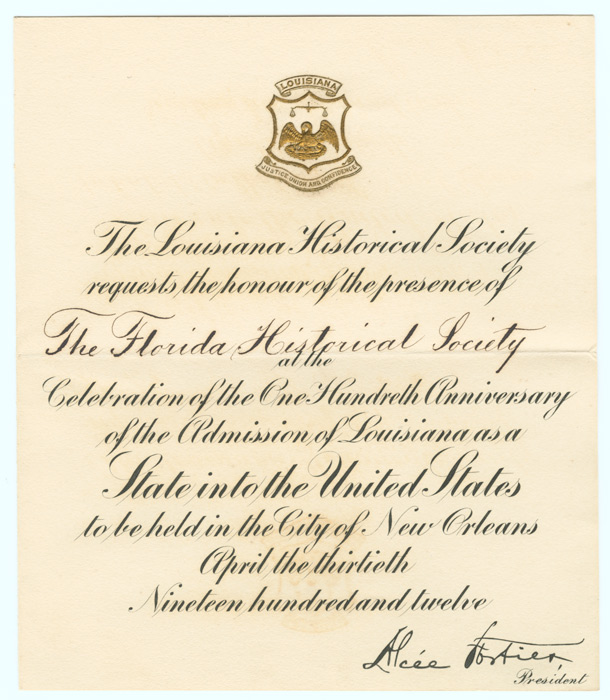 LOUISIANA
JUSTICE UNION AND CONFIDENCE
The Louisiana Historical Society
requests the honour of the presence of
The Florida Historical Society
at the
Celebration of the One Hundreth Anniversary
of the Admission of Louisiana as a
State into the United States
to be held in the City of New Orleans
April the thirtieth
Nineteen hundred and twelve
Alcée Fortier,
President